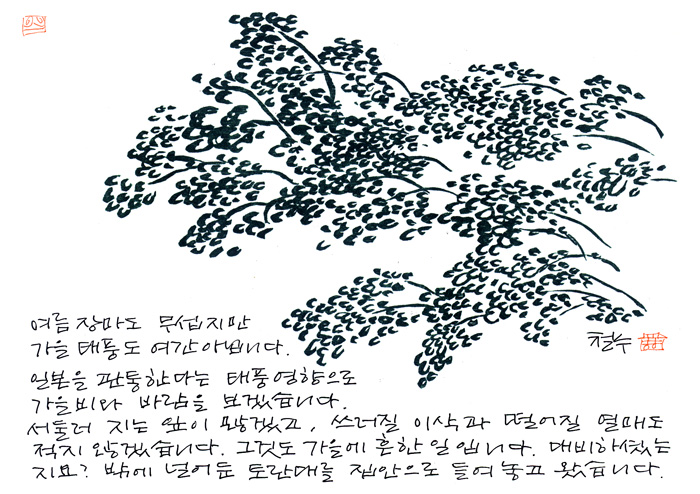 여름 장마도 무섭지만
가을 태풍도 여간아닙니다.
일본을 관통한다는 태풍영향으로
가을비와 바람을 보겠습니다.
서둘러 지는 잎이 많겠고, 쓰러질 이삭과 떨어질 열매도
적지 않겠습니다. 그것도 가을에 흔한 일입니다. 대비하셨는
지요? 밖에 널어둔 토란대를 집안으로 들여 놓고 왔습니다.
철수